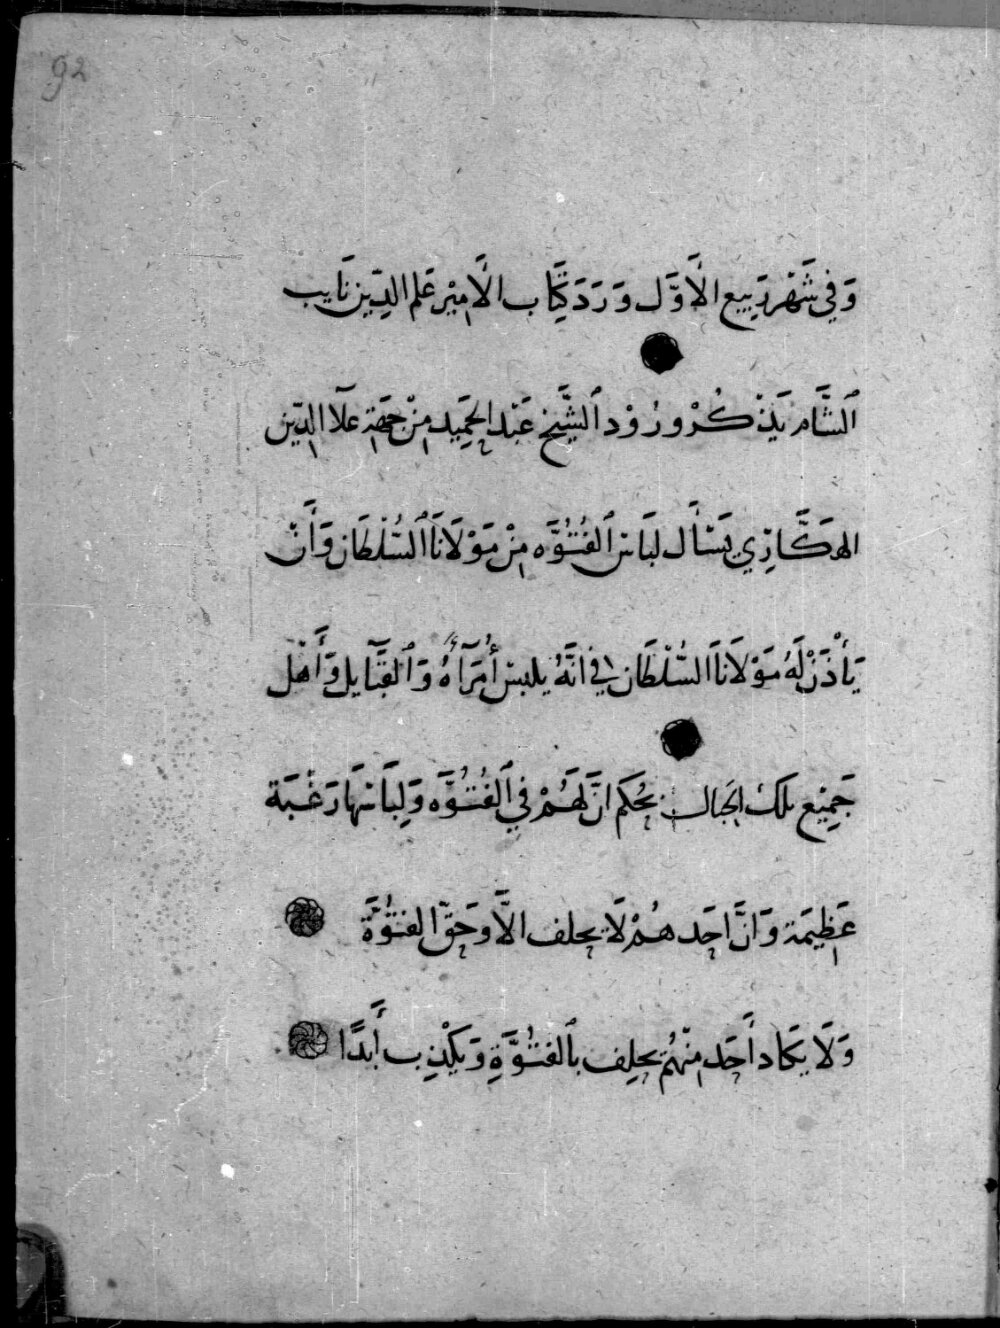 92
وَفِي شَهْر رَبِيع الْأَوَّل وَرَدَ كِتَاب الْأَمِيْر عَلم الدِّين نَايب
ٱلشَّام يَذْكُرْ وُرُوْد ٱلشَّيْخ عَبْد الحَمِيد مِنْ جِهَة علَآ الدِّين
الهَكَّارِي يَسْأَل لبَاس ٱلفُتُوَّه مِنْ مَوْلَانَا ٱلسُّلْطَان وَأَنْ
يَأْذَنْ لَهُ مَوْلَانَا السُّلْطَان في انَّهُ يلبس أُمَرَآءهُ وَٱلقَبَآيل وَأَهْل
جَمِيْع تلك الجبال بحُكم انَّ لَهُمْ في ٱلفُتُوَّه وَلِبَاسهَا رَغْبَة
عَظِيمَة وَانَّ احَدهُمْ لَا يحلف الَّا وحَقّ الفتُوَّة
وَلَا يَكاد أَحَد مِنْهُمْ يحلِف بٱلفتُوَّةِ وَيَكْذِب أَبَدًا